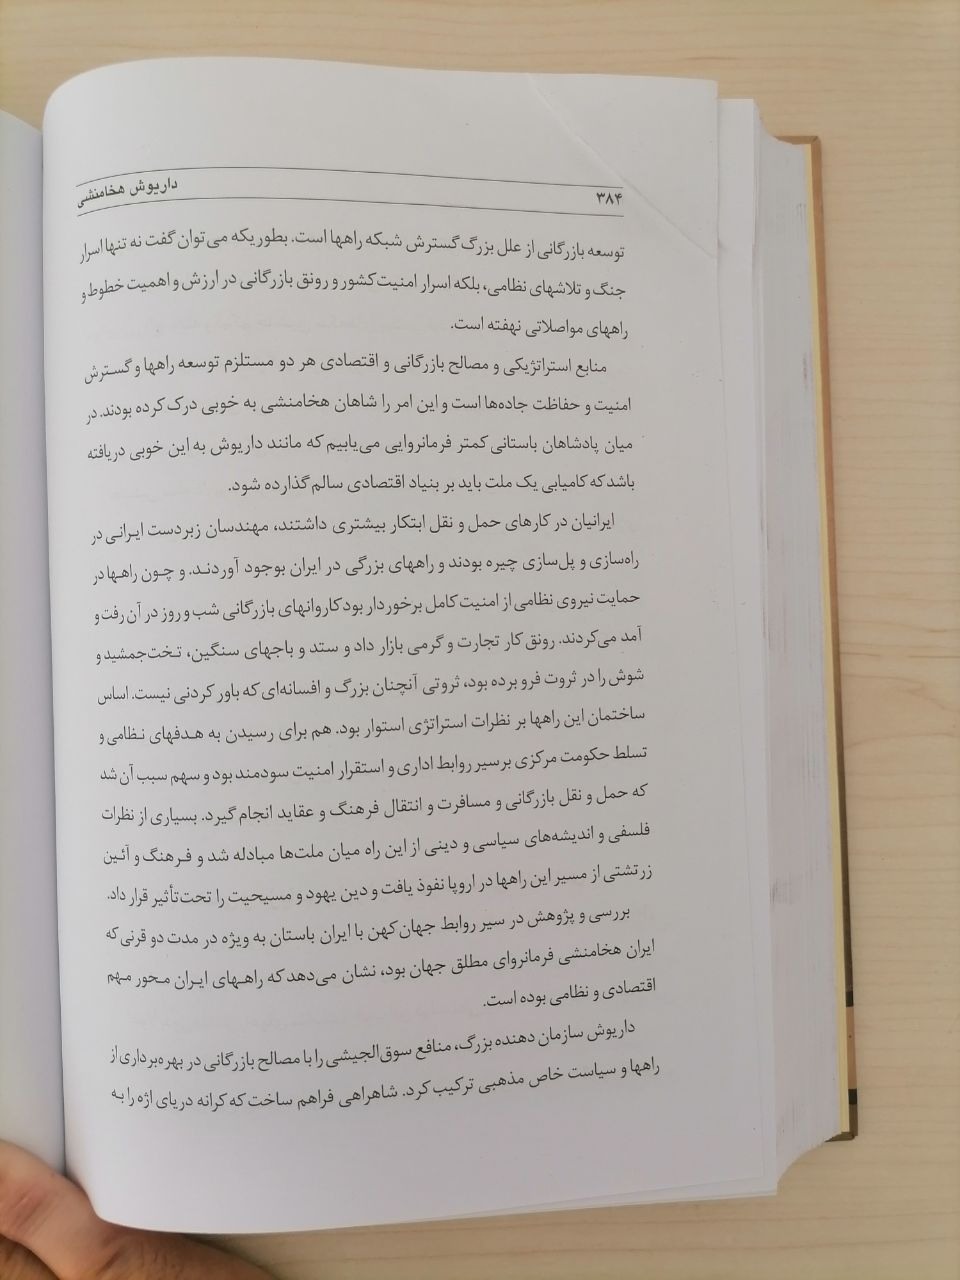 ۳۸۴
داریوش هخامنشی
توسعه بازرگانی از علل بزرگ گسترش شبکه راهها است. بطوریکه می‌توان گفت نه تنها اسرار
جنگ و تلاشهای نظامی، بلکه اسرار امنیت کشور و رونق بازرگانی در ارزش و اهمیت خطوط و
راههای مواصلاتی نهفته است.
منابع استراتژیکی و مصالح بازرگانی و اقتصادی هر دو مستلزم توسعه راهها و گسترش
امنیت و حفاظت جاده‌ها است و این امر را شاهان هخامنشی به خوبی درک کرده بودند. در
میان پادشاهان باستانی کمتر فرمانروایی می‌یابیم که مانند داریوش به این خوبی دریافته
باشد که کامیابی یک ملت باید بر بنیاد اقتصادی سالم گذارده شود.
ایرانیان در کارهای حمل و نقل ابتکار بیشتری داشتند، مهندسان زبردست ایرانی در
راه‌سازی و پل‌سازی چیره بودند و راههای بزرگی در ایران بوجود آوردند. و چون راهها در
حمایت نیروی نظامی از امنیت کامل برخوردار بود کاروانهای بازرگانی شب و روز در آن رفت و
آمد می‌کردند. رونق کار تجارت و گرمی بازار داد و ستد و باجهای سنگین، تخت‌جمشید و
شوش را در ثروت فرو برده بود، ثروتی آنچنان بزرگ و افسانه‌ای که باور کردنی نیست. اساس
ساختمان این راهها بر نظرات استراتژی استوار بود. هم برای رسیدن به هدفهای نظامی و
تسلط حکومت مرکزی برسیر روابط اداری و استقرار امنیت سودمند بود و سهم سبب آن شد
که حمل و نقل بازرگانی و مسافرت و انتقال فرهنگ و عقاید انجام گیرد. بسیاری از نظرات
فلسفی و اندیشه‌های سیاسی و دینی از این راه میان ملت‌ها مبادله شد و فرهنگ و آئین
زرتشتی از مسیر این راهها در اروپا نفوذ یافت و دین یهود و مسیحیت را تحت‌تأثیر قرار داد.
بررسی و پژوهش در سیر روابط جهان کهن با ایران باستان به ویژه در مدت دو قرنی که
ایران هخامنشی فرمانروای مطلق جهان بود، نشان می‌دهد که راههای ایران محور مهم
اقتصادی و نظامی بوده است.
داریوش سازمان دهنده بزرگ، منافع سوق‌الجیشی را با مصالح بازرگانی در بهره‌برداری از
راهها و سیاست خاص مذهبی ترکیب کرد. شاهراهی فراهم ساخت که کرانه دریای اژه را به